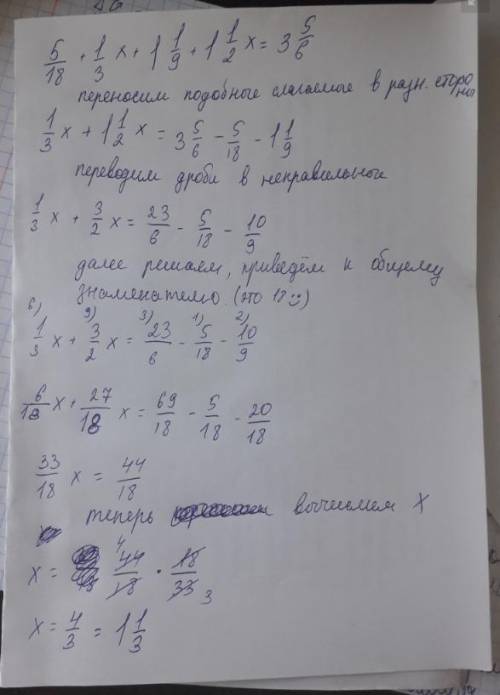 5/18 + 1/3 x + 1 1/9 + 1 1/2 x = 3 5/6
переносим подобные слагаемые в разн. стороны
1/3 x + 1 1/2 x = 3 5/6 - 5/18 - 1 1/9
переводим дроби в неправильной
1/3 x + 3/2 x = 23/6 - 5/18 - 10/9
далее решаем, приведём к общему
знаменателю. (это 18☺)
6) 9) 3) 1) 2)
1/3 x + 3/2 x = 23/6 - 5/18 - 10/9
6/18 x + 27/18 x = 69/18 - 5/18 - 20/18
33/18 x = 44/18
теперь вычислим x
x = 44/18 · 18/33
4 3
x = 4/3 = 1 1/3